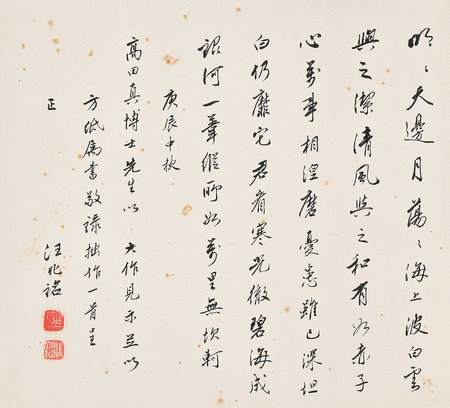 明〻天邊月蕩〻海上波白雲
與之潔清風與之和有如赤子
心萬事相涅磨憂患雖已深坦
白仍靡它君看寒光徹碧海成
銀河一葦縱所如萬里無坎軻
庚辰中秋
高田真博士先生以 大作見示並以
方紙屬書敬錄拙作一首呈
正
汪兆銘